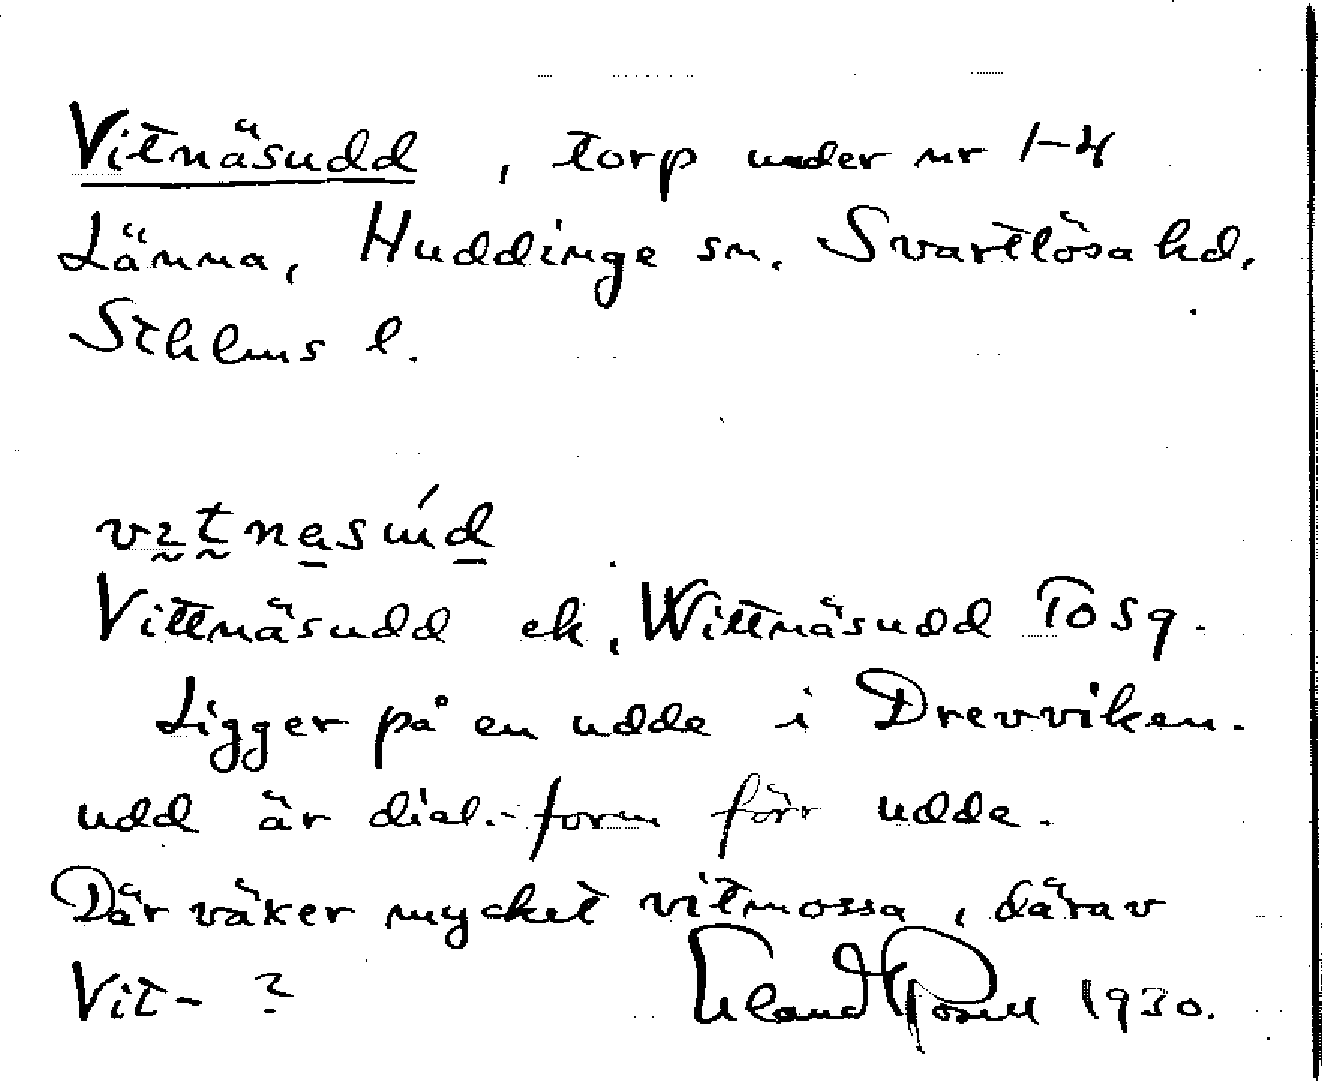 Vitnäsudd, torp under nr 1-4
Länna, Huddinge sn. Svartlösa hd.
Sthlms l.
Vittnäsudd ek, Wittnäsudd
Ligger på en udde i Drevviken.
udd är dial.-form för udde.
Där växer mycket vitmossa, därav
Vit- ? 1930.